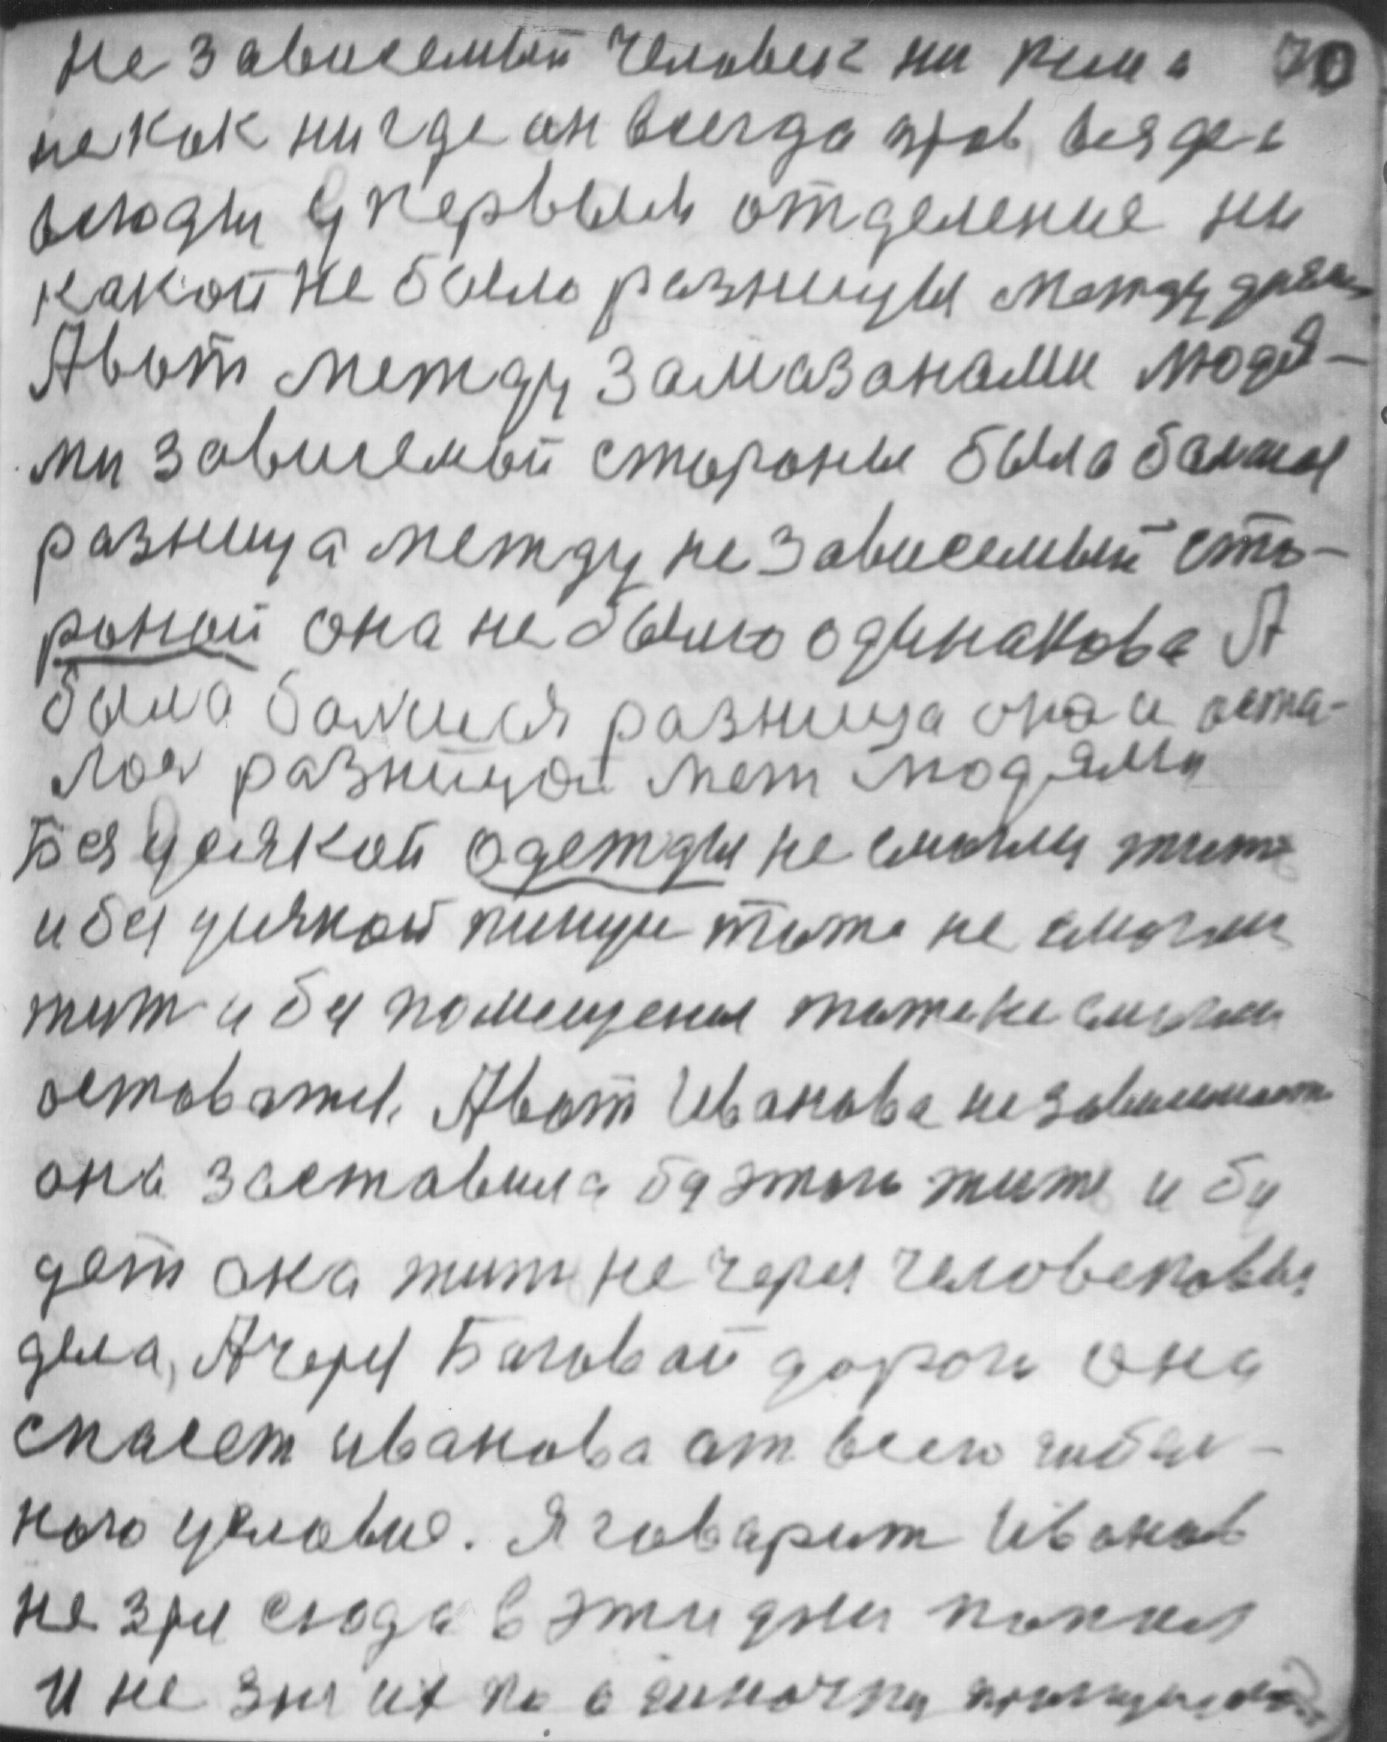 не зависемый человек ни кем а 70
не как ни где он всегда прав, вез де и
всюды У первым отделение ни
какой не было разницы между
Авот между замазаноми людя-
ми зависемой стороны была болшая
разница между не зависемый сто-
роной она не было одинакова А
была болшая разница она и оста-
лос разницой меж людями
Без усякой одежды не смоглы жить
и без усякой пищи тоже не смогли
жит и без помещения тоже не смогли
оставатся. Авот Иванова независимость
она заставила без этого жить и бу
дет она жить не через человековы
дела, А через Боговой дороги она
спасет иванова от всего гибел-
ного условие. Я говарит Иванов
не зря сюда в эти дни попал
и не зря их по о диночку